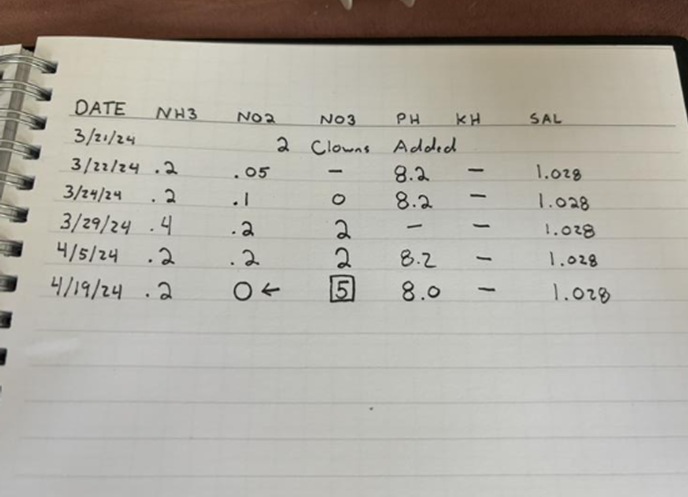 DATE NH3 NO2 NO3 PH KH SAL
3/21/24 2 Clowns Added
3/22/24 .2 .05 - 8.2 - 1.028
3/24/24 .2 .1 0 8.2 - 1.028
3/29/24 .4 .2 2 - - 1.028
4/5/24 .2 .2 2 8.2 - 1.028
4/19/24 .2 0← 5 8.0 - 1.028